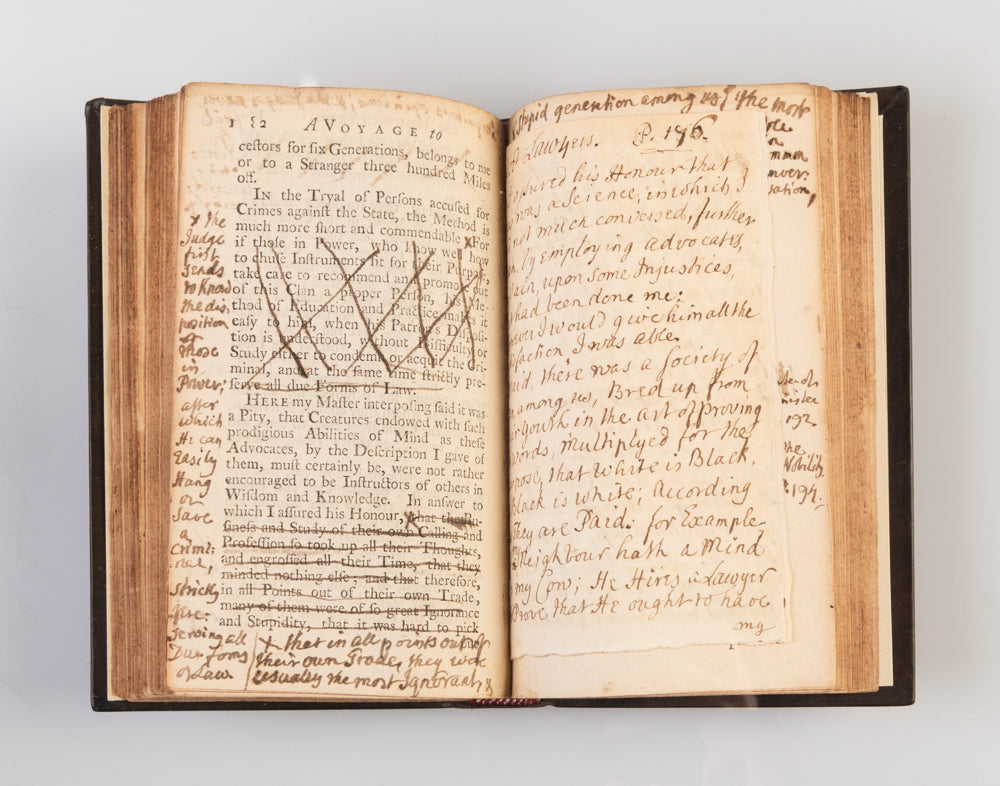 182 A VOYAGE to
cestors for six Generations, belongs to me
or to a Stranger three hundred Miles
off.
IN the Tryal of Persons accused for
Crimes against the State, the Method is
much more short and commendable x For
if those in Power, who know well how
to chuse Instruments fit for their Purpose,
take care to recommend and promote out
of this Clan a proper Person, his Me-
thod of Education and Practice makes it
easy to him, when his Patron's Disposi-
tion is understood, without Difficulty or
Study either to condemn or acquit the Cri-
minal, and at the same time strictly pre-
serve all due Forms of Law.
HERE my Master interposing said it was
a Pity, that Creatures endowed with such
prodigious Abilities of Mind as these
Advocates, by the Description I gave of
them, must certainly be, were not rather
encouraged to be Instructors of others in
Wisdom and Knowledge. In answer to
which I assured his Honour, that the Bu-
siness and Study of their own Calling and
Profession so took up all their Thoughts,
and engrossed all their Time, that they
minded nothing else, and that therefore,
in all Points out of their own Trade,
many of them were of so great Ignorance
and Stupidity, that it was hard to pick
x the
Judge
first
sends
to know
the dis,
position
of
those
in
Power;
after
which
He can
Easily
Hang
or
Save
a
Crimi:
nal,
strictly
pre:
serving all
Due forms
of Law
x that in all points out of
their own Trade, they were
usually the most Ignorant &
stupid generation among us, the most
mmon
nver:
sation,
Lawyers. P. 176.
assured his Honour that
was a Science, in which I
not much conversed, further
by employing advocates,
vain upon some Injustices,
had been done me:
ever I would give him all the
sfaction I was able.
said, there was a Society of
among us, Bred up from
ir Youth in the art of proving
words, multiplyed for the
pose, that White is Black,
Black is white; According
they are Paid. for Example
Neighbour hath a Mind
my Cow; He Hires a Lawyer
Prove that He ought to have
my
192.
the
Nobility
194.